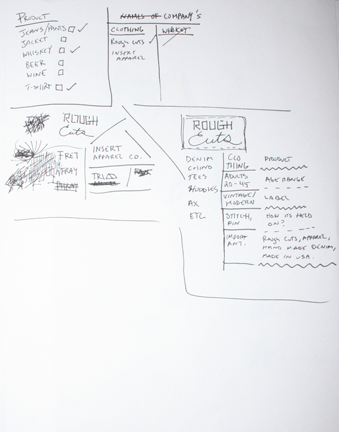 PRODUCT
JEANS/PANTS
JACKET
WHISKEY
BEER
WINE
T-SHIRT
NAMES OF COMPANY'S
CLOTHING
WHISKEY
ROUGH CUTS
INSERT
APPAREL
ROUGH
Cuts
FRET
AFRAY
INSERT
APPAREL CO.
TRIAD
ROUGH
Cuts
DENIM
TEES
HOODIES
AX
ETC
CLO
THING
PRODUCT
ADULTS
20-45
AGE RANGE
VINTAGE/
MODERN
LABEL
STITCH,
PIN
HOW IS HELD
ON?
IMPORT
ANT.
ROUGH CUTS, APPAREL,
HAND MADE DENIM,
MADE IN USA.